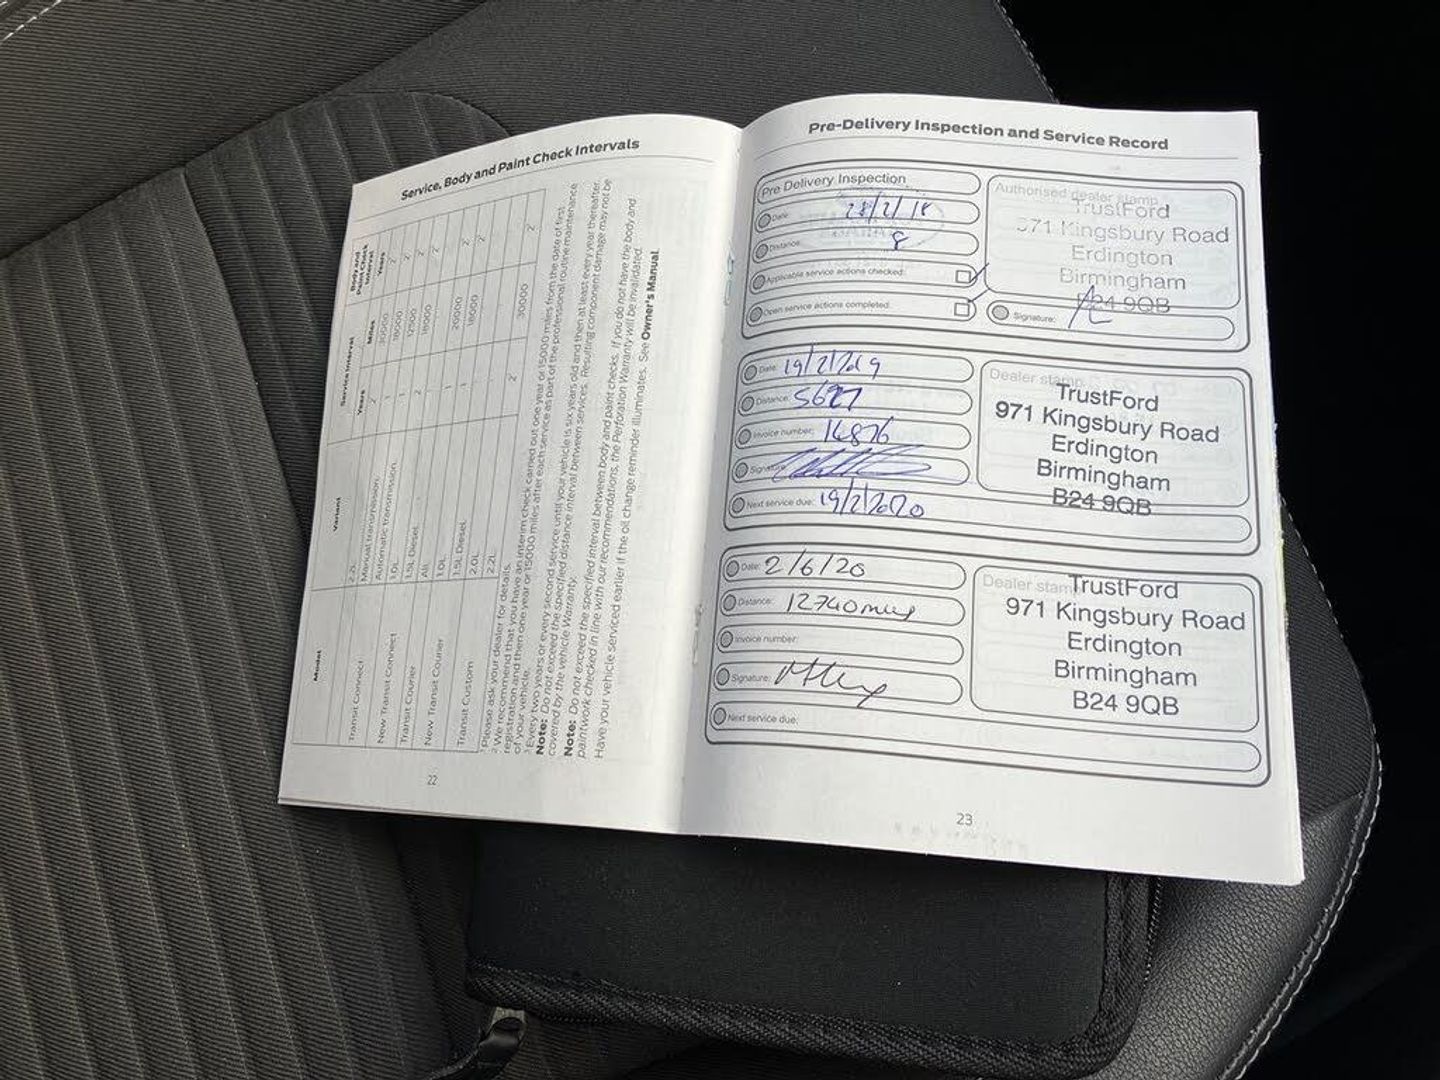 Service, Body and Paint Check Intervals
Model
Variant
Service Interval
Body and
Paint Check
Interval
Years
Miles
Years
Transit Connect
2.2L
Manual transmission.
2
30000
2
Automatic transmission.
1
18000
2
New Transit Connect
1.0L
1
12500
2
1.5L Diesel.
2
18000
2
Transit Courier
All.
New Transit Courier
1.0L
1
20000
2
1.5L Diesel.
1
18000
2
Transit Custom
2.0L
2.2L
2
30000
2
Please ask your dealer for details.
We recommend that you have an interim check carried out one year or 15000 miles from the date of first
registration and then one year or 15000 miles after each service as part of the professional routine maintenance
of your vehicle.
Every two years or every second service until your vehicle is six years old and then at least every year thereafter.
Note: Do not exceed the specified distance interval between services. Resulting component damage may not be
covered by the vehicle Warranty.
Note: Do not exceed the specified interval between body and paint checks. If you do not have the body and
paintwork checked in line with our recommendations, the Perforation Warranty will be invalidated.
Have your vehicle serviced earlier if the oil change reminder illuminates. See Owner's Manual.
22
Pre-Delivery Inspection and Service Record
Pre Delivery Inspection
Date: 28/2/18
Distance: 8
Applicable service actions checked:
Open service actions completed:
Authorised dealer stamp
TrustFord
971 Kingsbury Road
Erdington
Birmingham
B24 9QB
Signature:
Date: 19/2/2019
Distance: 5627
Invoice number: 14876
Signature:
Next service due: 19/2/2020
Dealer stamp
TrustFord
971 Kingsbury Road
Erdington
Birmingham
B24 9QB
Date: 2/6/20
Distance: 12740 miles
Invoice number:
Signature:
Next service due:
Dealer stamp
TrustFord
971 Kingsbury Road
Erdington
Birmingham
B24 9QB
23